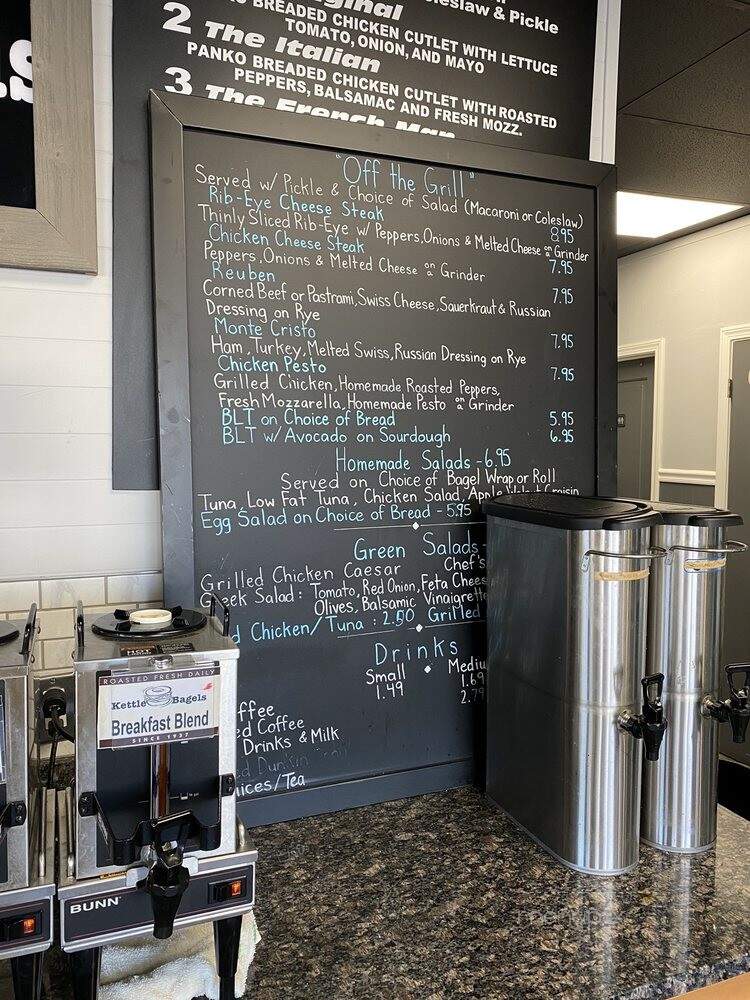 Coleslaw & Pickle
BREADED CHICKEN CUTLET WITH LETTUCE
TOMATO, ONION, AND MAYO
2 The Italian
PANKO BREADED CHICKEN CUTLET WITH ROASTED
PEPPERS, BALSAMAC AND FRESH MOZZ.
3 The French Man
"Off the Grill"
Served w/ Pickle & Choice of Salad (Macaroni or Coleslaw)
Rib-Eye Cheese Steak 8.95
Thinly Sliced Rib-Eye w/ Peppers, Onions & Melted Cheese on a Grinder
Chicken Cheese Steak 7.95
Peppers, Onions & Melted Cheese on a Grinder
Reuben 7.95
Corned Beef or Pastrami, Swiss Cheese, Sauerkraut & Russian
Dressing on Rye
Monte Cristo 7.95
Ham, Turkey, Melted Swiss, Russian Dressing on Rye
Chicken Pesto 7.95
Grilled Chicken, Homemade Roasted Peppers,
Fresh Mozzarella, Homemade Pesto on a Grinder
BLT on Choice of Bread 5.95
BLT w/ Avocado on Sourdough 6.95
Homemade Salads - 6.95
Served on Choice of Bagel Wrap or Roll
Tuna, Low Fat Tuna, Chicken Salad, Apple Walnut Craisin
Egg Salad on Choice of Bread - 5.95
Green Salads -
Grilled Chicken Caesar Chef's
Greek Salad: Tomato, Red Onion, Feta Chees
Olives, Balsamic Vinaigrette
d Chicken/Tuna : 2.50 Grilled
Drinks
Small Mediu
1.49 1.69
2.79
ffee
ed Coffee
Drinks & Milk
uices/Tea
HOT
ROASTED FRESH DAILY
Kettle Bagels
Breakfast Blend
SINCE 1937
BUNN